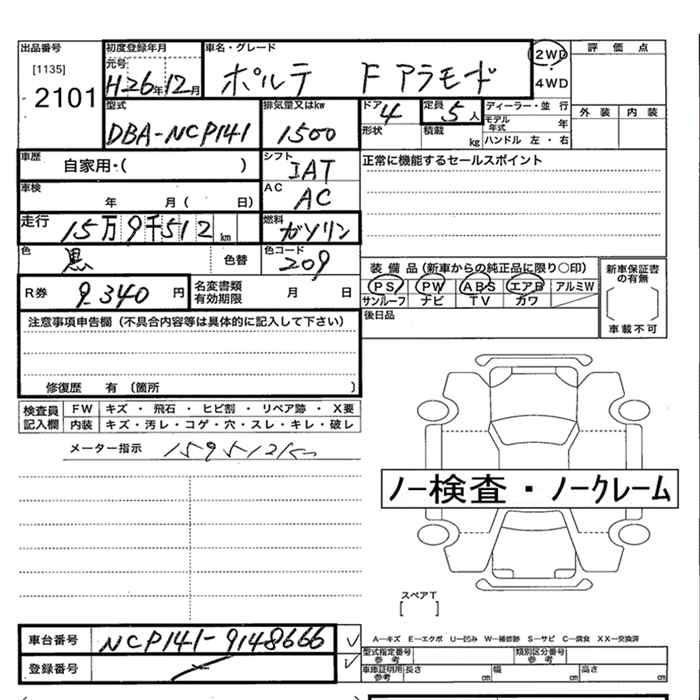 出品番号 初度登録年月 車名・グレード 2WD 評価点
[1135] 元号 4WD
2101 H26年12月 ポルテ F アラモード
型式 排気量又はkw ドア 4 定員 5人 ディーラー・並行 外装 内装
DBA-NCP141 1500 形状 積載 kg モデル年式 年
ハンドル 左・右
車歴 自家用・( ) シフト IAT 正常に機能するセールスポイント
車検 年 月( 日) AC AC
走行 15万9千512km 燃料 ガソリン
色 黒 色替 色コード 209 装備品(新車からの純正品に限り○印) 新車保証書の有無
R券 9,340円 名変書類有効期限 月 日 PS PW ABS エアB アルミW
サンルーフ ナビ TV カワ 車載不可
注意事項申告欄(不具合内容等は具体的に記入して下さい) 後日品
修復歴 有(箇所 )
検査員記入欄 FW キズ・飛石・ヒビ割・リペア跡・X要
内装 キズ・汚レ・コゲ・穴・スレ・キレ・破レ
メーター指示 159512km
ノー検査・ノークレーム
スペアT
[ ]
車台番号 NCP141-9148666
A―キズ E―エクボ U―凹み W―補修跡 S―サビ C―腐食 XX―交換済
登録番号 型式指定番号 参考 類別区分番号 参考
車庫証明用 参考 長さ cm 幅 cm 高さ cm